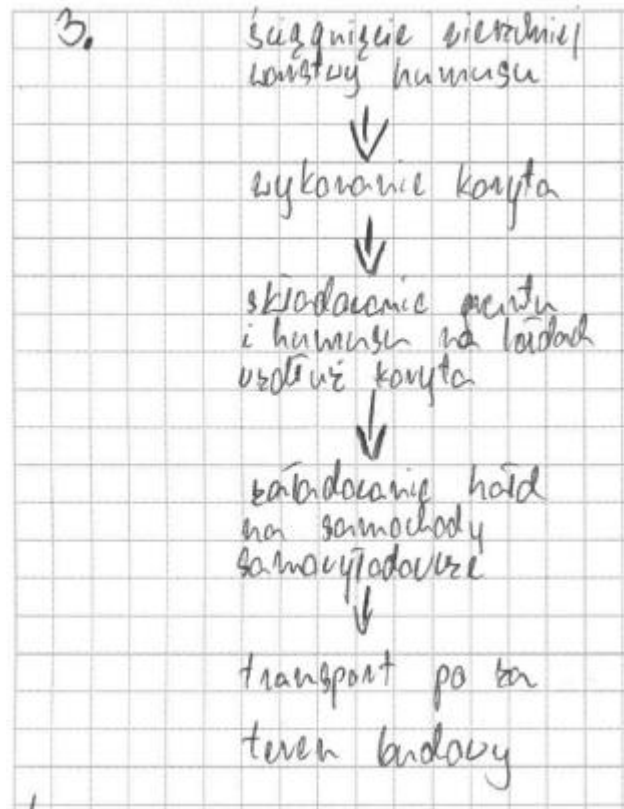 3.
ściągnięcie wierzchniej
warstwy humusu
wykonanie koryta
składowanie gruntu
i humusu na hałdach
wzdłuż koryta
załadowanie hałd
na samochody
samowyładowcze
transport po za
teren budowy